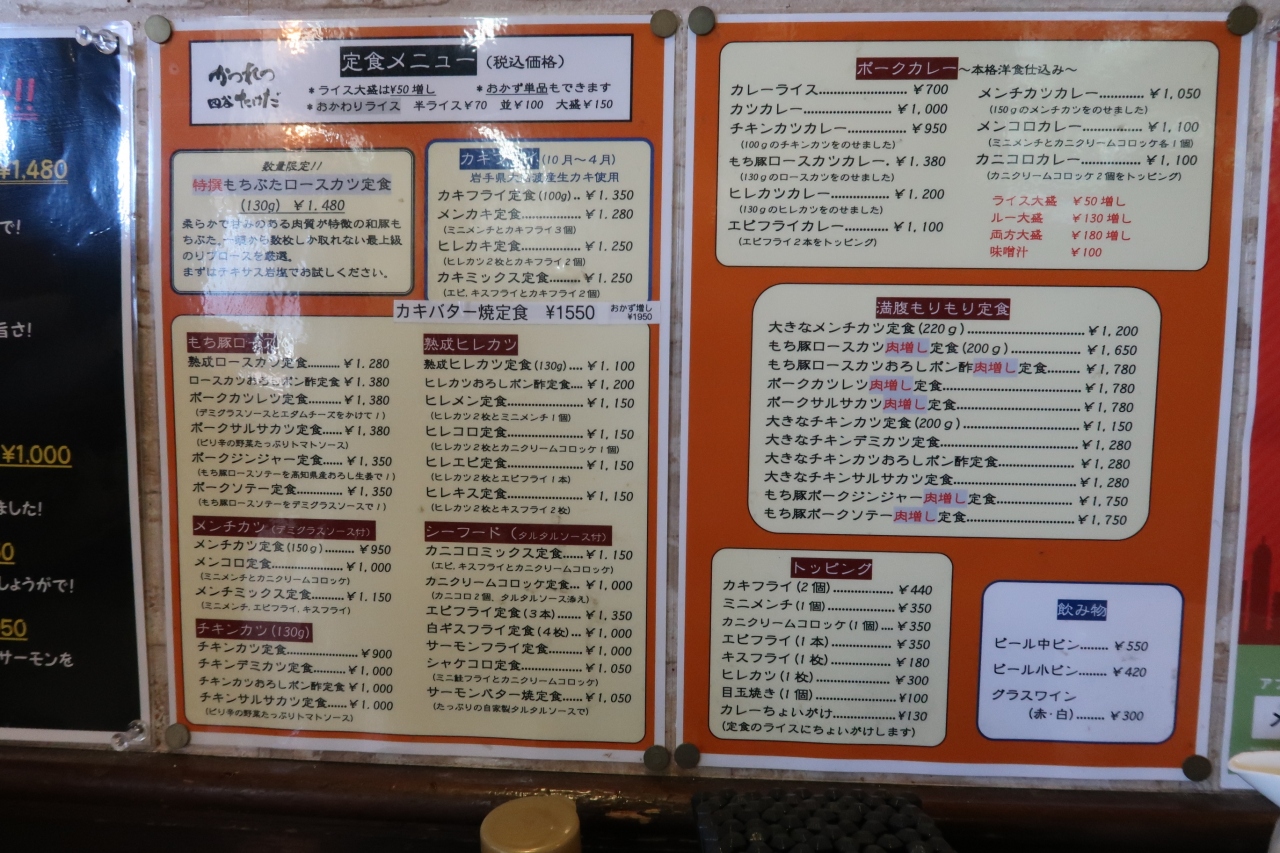 ¥1,480
で!
旨さ!
¥1,000
ました!
しょうがで!
50
サーモンを
かつれつ
四谷たけだ
定食メニュー(税込価格)
*ライス大盛は¥50増し *おかず単品もできます
*おかわりライス 半ライス¥70 並¥100 大盛¥150
数量限定!!
特撰もちぶたロースカツ定食
(130g) ¥1.480
柔らかで甘みのある肉質が特徴の和豚も
ちぶた。一頭から数枚しか取れない最上級
のリブロースを厳選。
まずはテキサス岩塩でお試しください。
カキフライ(10月~4月)
岩手県大船渡産生カキ使用
カキフライ定食(100g)..¥1.350
メンカキ定食........¥1.280
(ミニメンチとカキフライ3個)
ヒレカキ定食........¥1.250
(ヒレカツ2枚とカキフライ2個)
カキミックス定食......¥1.250
(エビ,キスフライとカキフライ2個)
カキバター焼定食 ¥1550 おかず増し
¥1950
もち豚ロース
熟成ロースカツ定食........¥1.280
ロースカツおろしポン酢定食 ¥1.380
ポークカツレツ定食........¥1,380
(デミグラスソースとエダムチーズをかけて!)
ポークサルサカツ定食......¥1,380
(ピリ辛の野菜たっぷりトマトソース)
ポークジンジャー定食....¥1,350
(もち豚ロースソテーを高知県産おろし生姜で!)
ポークソテー定食..........¥1,350
(もち豚ロースソテーをデミグラスソースで!)
メンチカツ(デミグラスソース付)
メンチカツ定食(150g).........¥950
メンコロ定食..................¥1,000
(ミニメンチとカニクリームコロッケ)
メンチミックス定食........¥1.150
(ミニメンチ,エビフライ,キスフライ)
チキンカツ(130g)
チキンカツ定食....................¥900
チキンデミカツ定食..........¥1,000
チキンカツおろしポン酢定食 ¥1,000
チキンサルサカツ定食......¥1.000
(ピリ辛の野菜たっぷりトマトソース)
熟成ヒレカツ
熟成ヒレカツ定食(130g)....¥1.100
ヒレカツおろしポン酢定食....¥1,200
ヒレメン定食..................¥1,150
(ヒレカツ2枚とミニメンチ1個)
ヒレコロ定食..................¥1,150
(ヒレカツ2枚とカニクリームコロッケ1個)
ヒレエビ定食..................¥1,150
(ヒレカツ2枚とエビフライ1本)
ヒレキス定食..................¥1,150
(ヒレカツ2枚とキスフライ2枚)
シーフード(タルタルソース付)
カニコロミックス定食......¥1.150
(エビ,キスフライとカニクリームコロッケ)
カニクリームコロッケ定食...¥1,000
(カニコロ2個、タルタルソース添え)
エビフライ定食(3本)......¥1,350
白ギスフライ定食(4枚)...¥1.000
サーモンフライ定食........¥1.000
シャケコロ定食..............¥1.050
(ミニ鮭フライとカニクリームコロッケ)
サーモンバター焼定食......¥1,050
(たっぷりの自家製タルタルソースで)
ポークカレー~本格洋食仕込み~
カレーライス......................¥700
カツカレー........................¥1,000
チキンカツカレー..............¥950
(100gのチキンカツをのせました)
もち豚ロースカツカレー.¥1.380
(130gのロースカツをのせました)
ヒレカツカレー................¥1.200
(130gのヒレカツをのせました)
エビフライカレー............¥1,100
(エビフライ2本をトッピング)
メンチカツカレー............¥1,050
(150gのメンチカツをのせました)
メンコロカレー..............¥1,100
(ミニメンチとカニクリームコロッケ各1個)
カニコロカレー..............¥1,100
(カニクリームコロッケ2個をトッピング)
ライス大盛 ¥50増し
ルー大盛 ¥130増し
両方大盛 ¥180増し
味噌汁 ¥100
満腹もりもり定食
大きなメンチカツ定食(220g)......................¥1,200
もち豚ロースカツ肉増し定食(200g)..................¥1,650
もち豚ロースカツおろしポン酢肉増し定食........¥1,780
ポークカツレツ肉増し定食..............................¥1,780
ポークサルサカツ肉増し定食............................¥1,780
大きなチキンカツ定食(200g)..........................¥1,150
大きなチキンデミカツ定食..............................¥1,280
大きなチキンカツおろしポン酢定食..................¥1,280
大きなチキンサルサカツ定食............................¥1,280
もち豚ポークジンジャー肉増し定食..................¥1,750
もち豚ポークソテー肉増し定食........................¥1,750
トッピング
カキフライ(2個)..............¥440
ミニメンチ(1個)..............¥350
カニクリームコロッケ(1個)....¥350
エビフライ(1本)..............¥350
キスフライ(1枚)..............¥180
ヒレカツ(1枚)................¥300
目玉焼き(1個)................¥100
カレーちょいがけ..............¥130
(定食のライスにちょいがけします)
飲み物
ビール中ビン........¥550
ビール小ビン........¥420
グラスワイン
(赤・白)........¥300